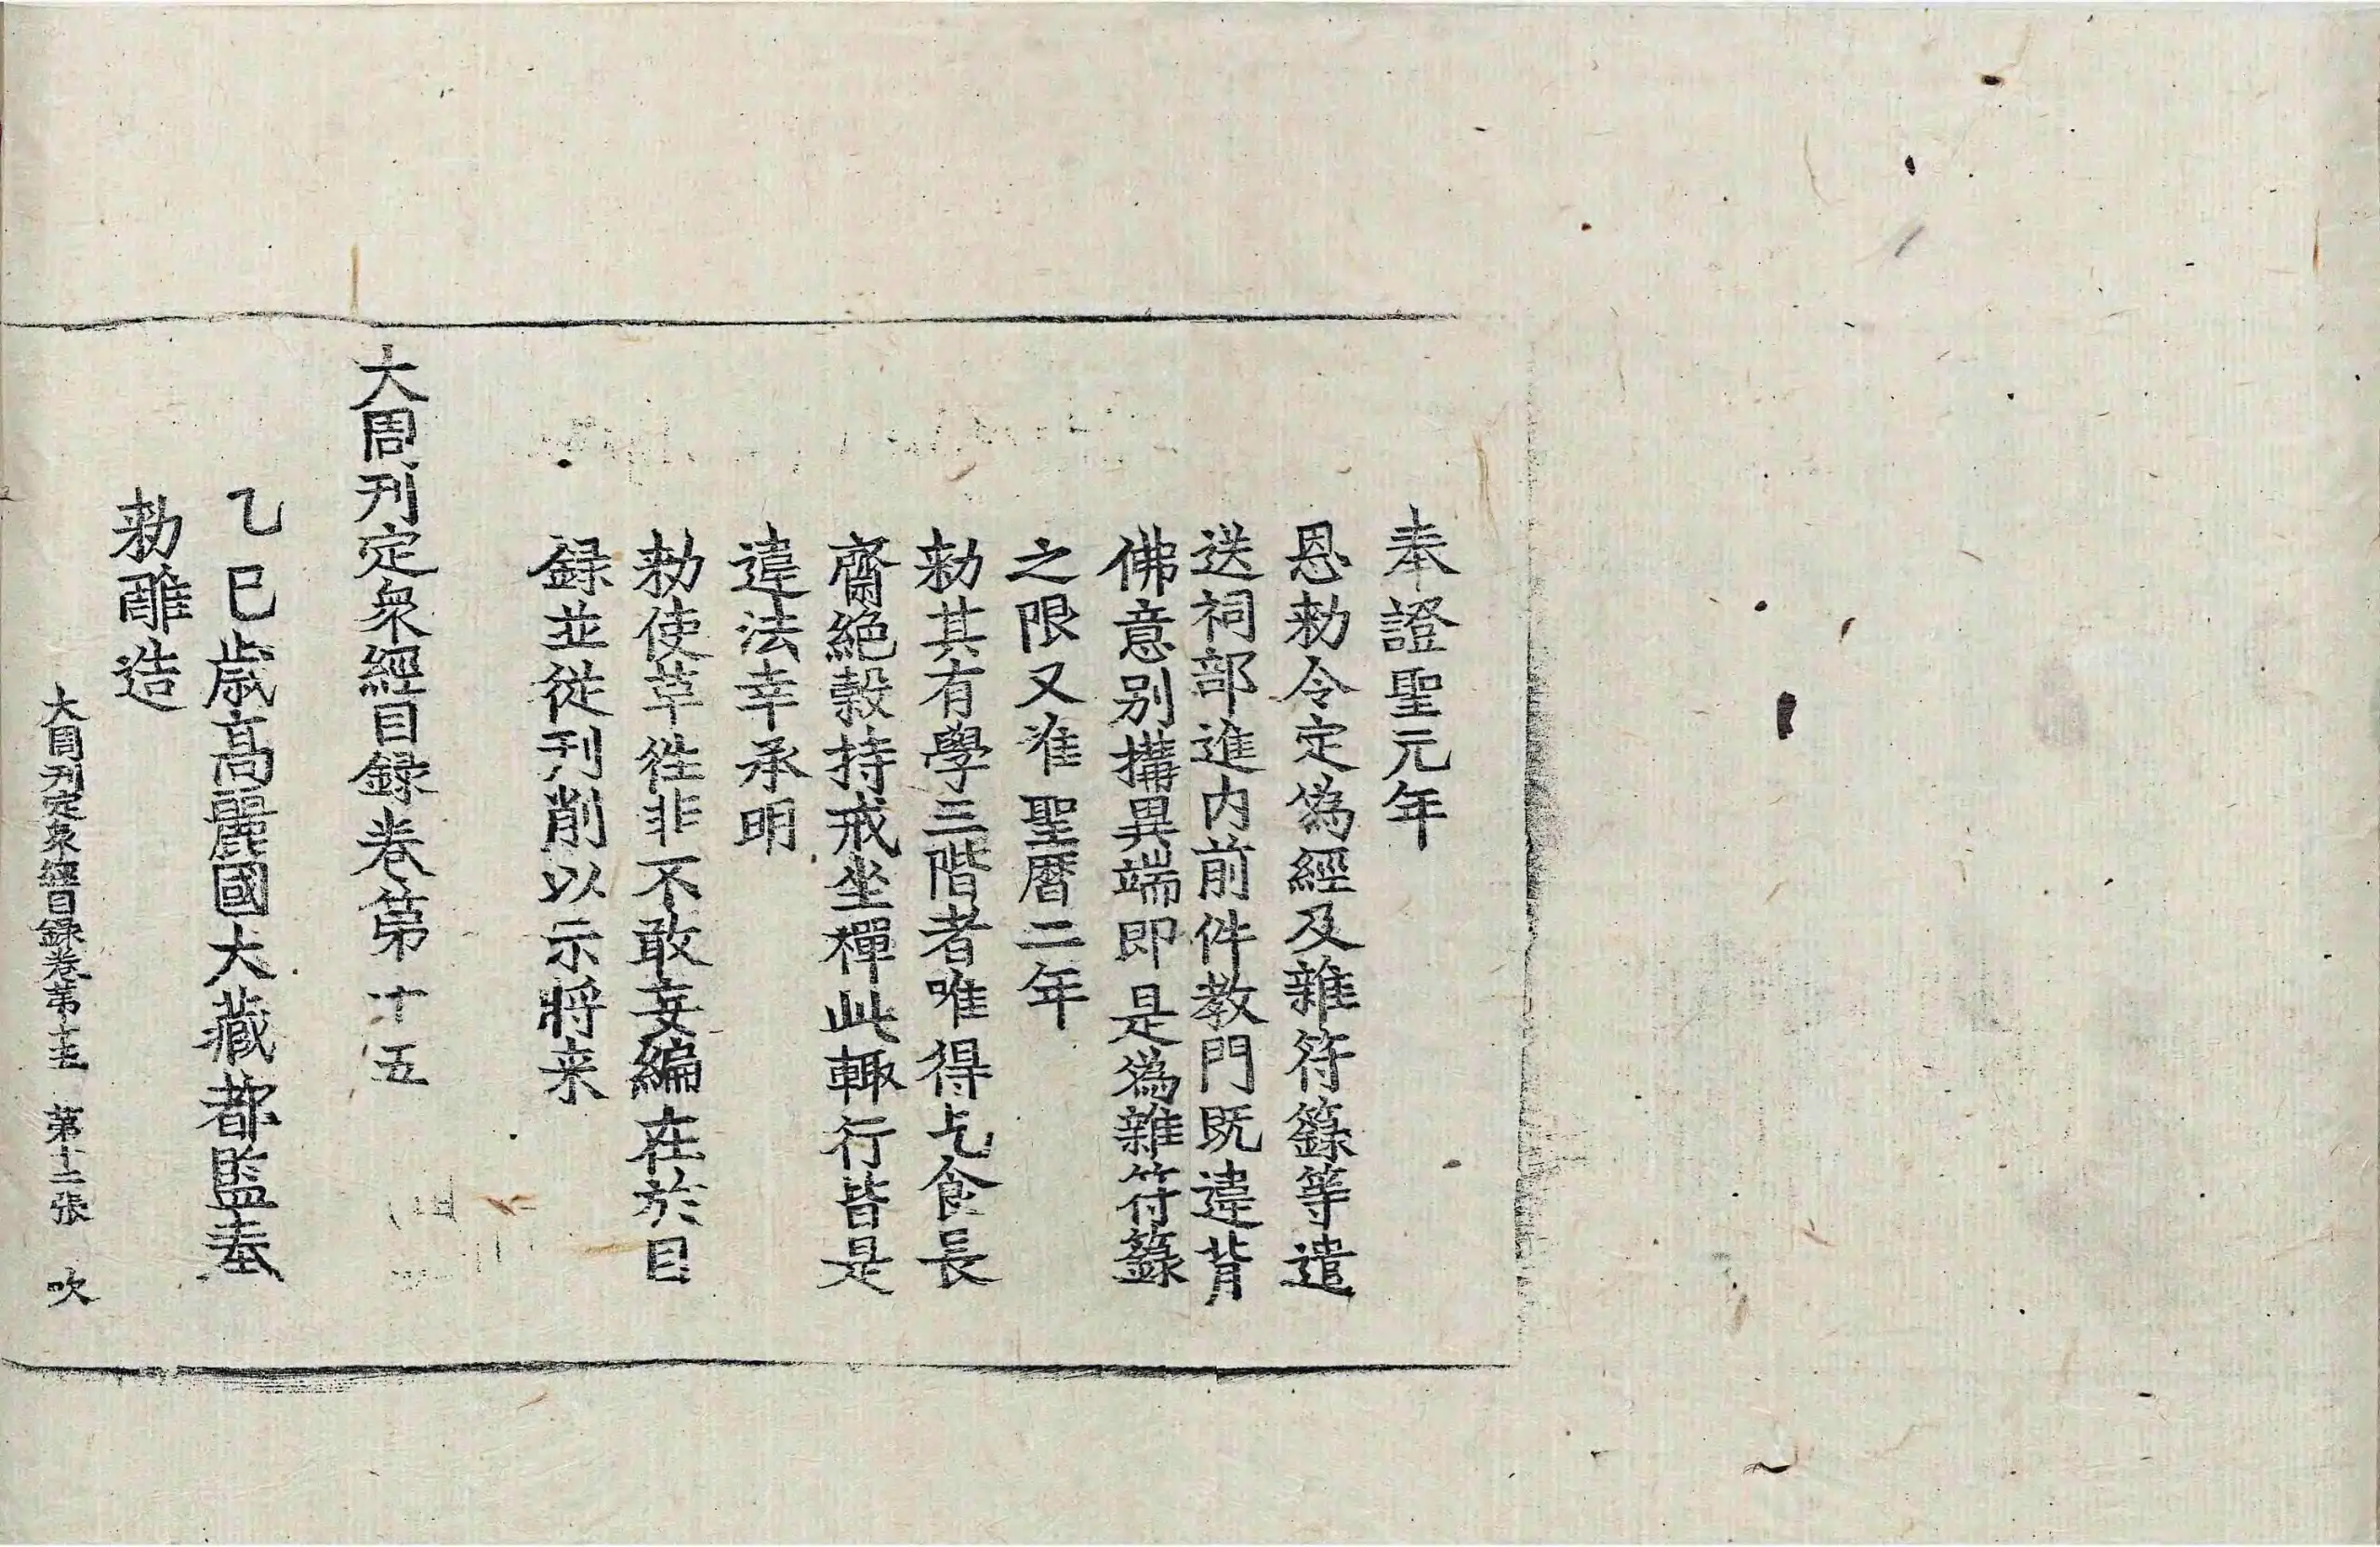 奉證聖元年
恩勑令定為經及雜符籙等遣
送祠部進內前件教門既違背
佛意别搆異端即是為雜符籙
之限又准聖曆二年
勑其有學三階者唯得乞食長
齋絕穀持戒坐禪此輙行皆是
違法幸承明
勑使革往非不敢妄編在於目
録並從刊削以示將来
大周刊定衆經目録卷第十五
乙巳歳高麗國大藏都監奉
勑雕造
大周刊定衆經目録卷第十五 第十二張 吹